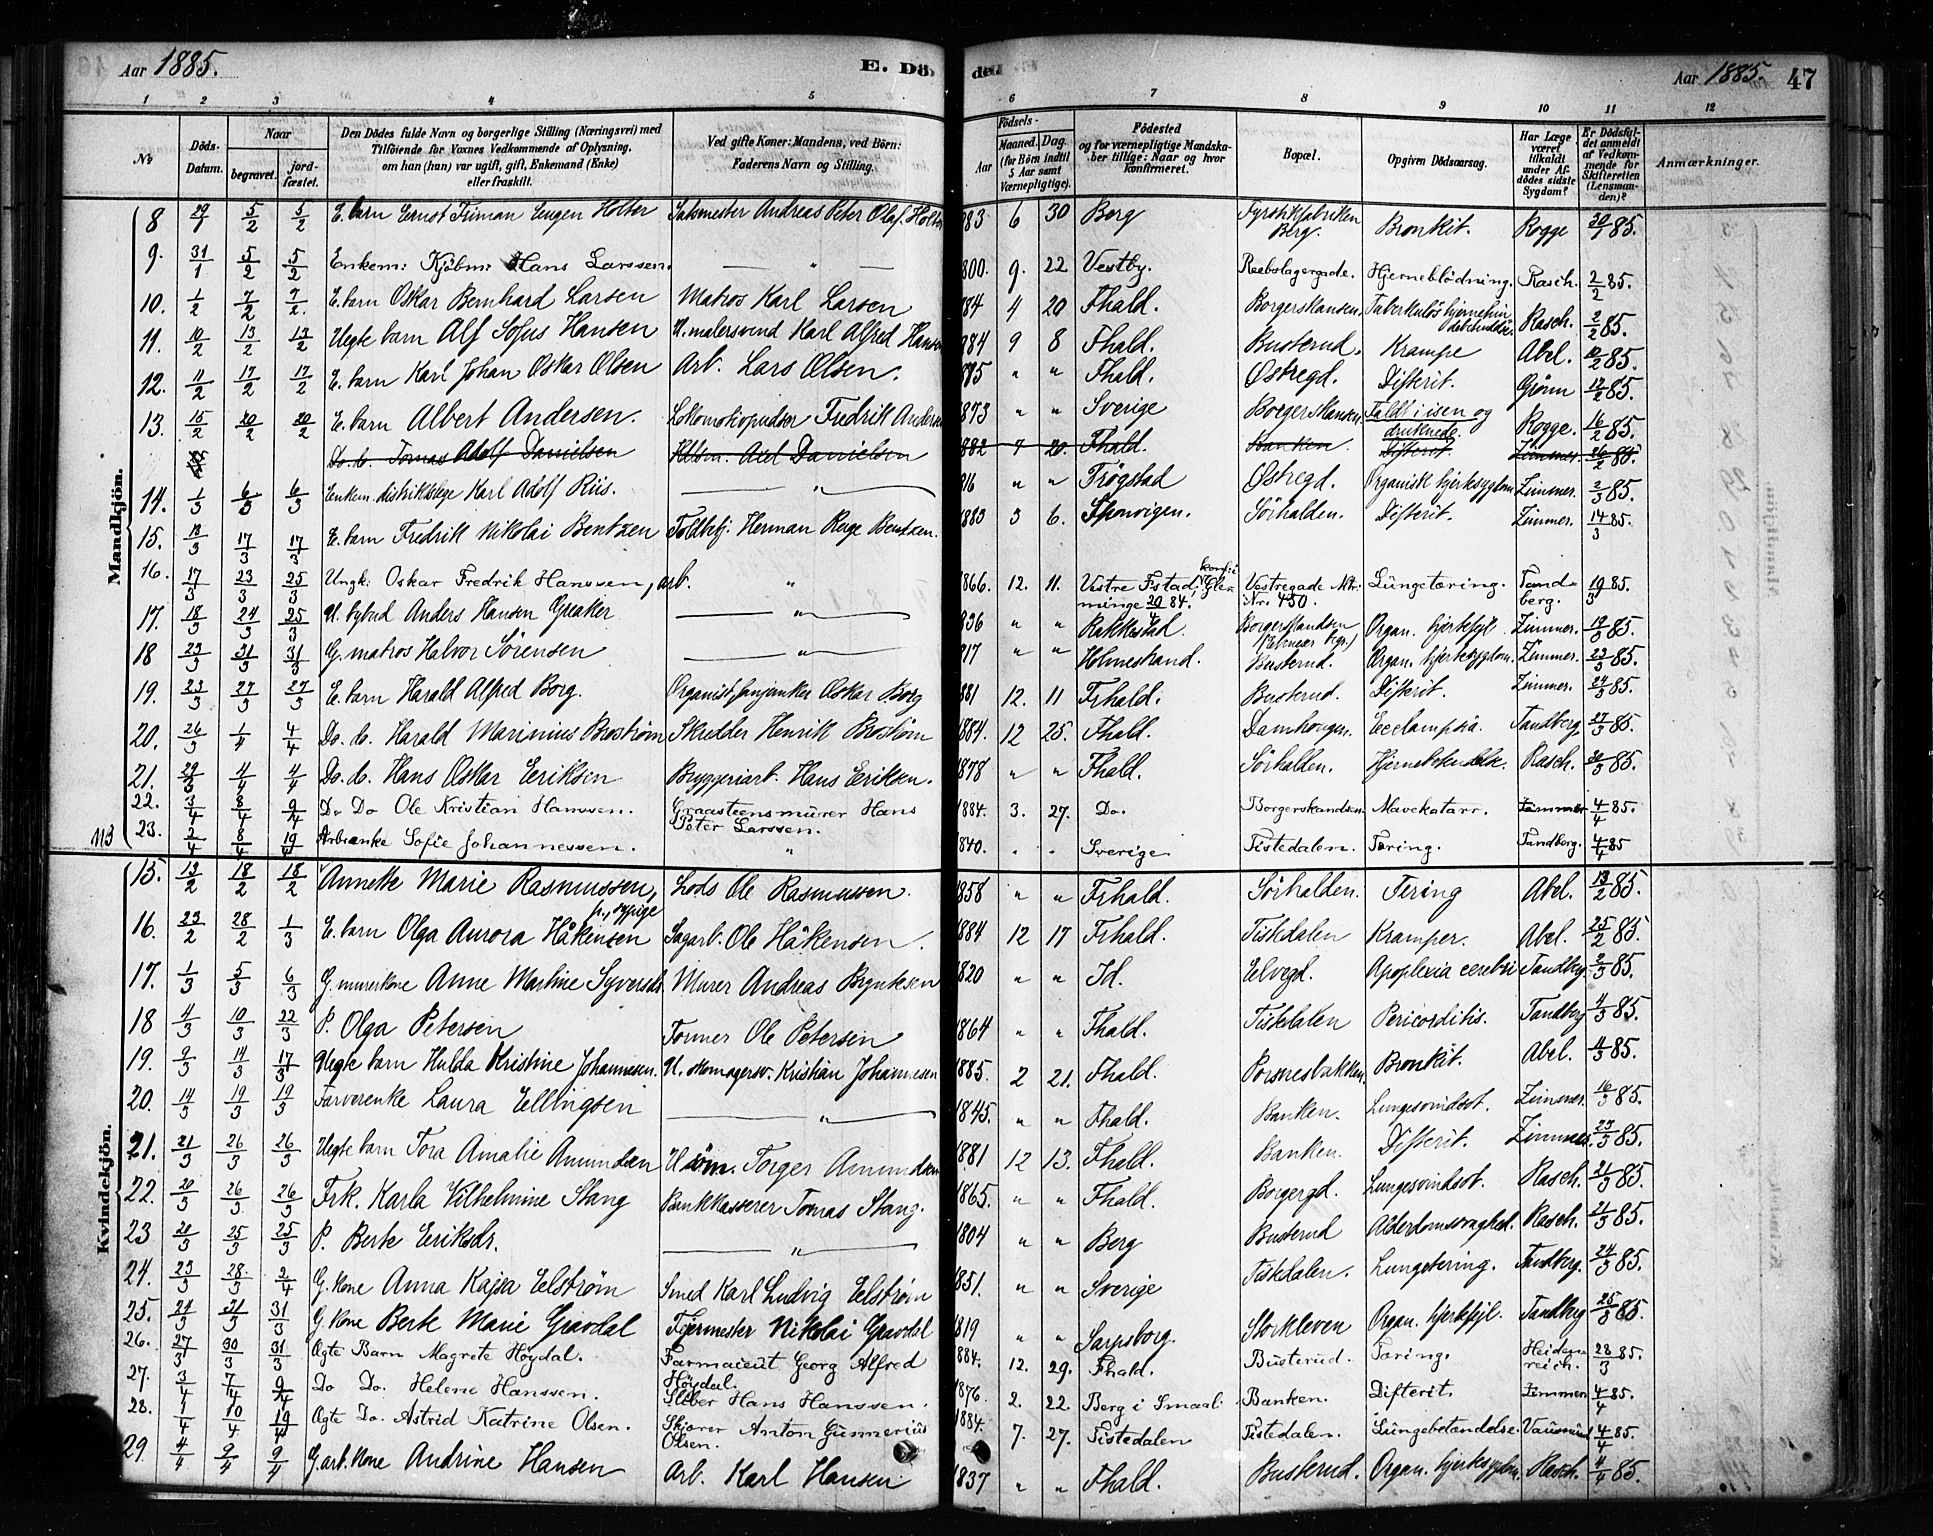 Aar 1885. E. Dö. de Aar 1885. 47
1 2 3 4 5 6 7 8 9 10 11 12
No Döds-Datum. Naar begravet. jordfæstet. Den Dödes fulde Navn og borgerlige Stilling (Næringsvei) med Tilföiende for Voxnes Vedkommende af Oplysning, om han (hun) var ugift, gift, Enkemand (Enke) eller fraskilt. Ved gifte Koner: Mandens, ved Börn: Faderens Navn og Stilling. Födsels- Aar Maaned. Dag. (for Börn indtil 5 Aar samt Værnepligtige). Födested og for værnepligtige Mandskaber tillige: Naar og hvor konfirmeret. Bopæl. Opgiven Dödsaarsag. Har Læge været tilkaldt under Afdödes sidste Sygdom? Er Dödsfaldet anmeldt af Vedkommende for Skifteretten (Lensmanden)? Anmærkninger.
Mandkjön.
8 29/1 5/2 5/2 E. barn Ernst Eugen Holter Andreas Peter Olaf Holter 883 6 30 Berg Fyrstikfabriken Berg. Bronkit. Rogge 30/1 85.
9. 31/1 5/2 5/2 Enkem: Kjöbm: Hans Larssen. — „ — 800. 9. 22 Vestby. Reebslagergade. Hjerneblödning. Rasch. 2/2 85.
10. 1/2 7/2 7/2. E. barn Oskar Bernhard Larsen Matros Karl Larsen 884 4 20 Fhald. Borgerskansen. Tuberkulös Rasch. 2/2 85.
11. 10/2 13/2 13/2 Uegte barn Alf Sofus Hansen U. malersvend Karl Alfred Hansen 884 9 8 Fhald. Busterud. Krampe Abel. 10/2 85.
12. 11/2 17/2 17/2 E. barn Karl Johan Oskar Olsen Arb. Lars Olsen. 875 „ „ Fhald. Østregd. Difterit. Grönn 12/2 85.
13. 15/2 20/2 20/2 E. barn Albert Andersen. Lokomotivpudser Fredrik Andersen 873 „ „ Sverige Borgerskansen Faldt i isen og druknede. Rogge. 16/2 85.
Do. do. Tomas Adolf Danielsen Axel Danielsen 882 7 20. Fhald. Banken Difterit Zimmer. 26/2 85.
14. 1/3 6/3 6/3 Enkem. distriktslæge Karl Adolf Riis. — „ — 816 „ „ Trögstad Østregd. Organisk hjertesygdom Zimmer. 2/3 85.
15. 13/3 17/3 17/3 E. barn Fredrik Nikolai Bentzen Toldbetj. Herman Bentzen. 1883 3 6. Sponvigen. Sörhalden. Difterit. Zimmer. 14/3 85.
16. 17/3 23/3 25/3 Ungk: Oskar Fredrik Hanssen, arb. „ 1866. 12. 11. Vestre Fstad, konf: i Glemminge 20/4 84. Vestregade Mtr. Nr. 450. Lungetæring. Tandberg. 19/3 85.
17. 18/3 24/3 25/3 U. bybud Anders Hansen Greaker — „ — 836 „ „ Rakkestad. Borgerskansen Organ. hjertefejl. Zimmer. 19/3 85.
18 23/3 31/3 31/3 G. matros Halvor Sörensen — „ — 817 „ „ Holmestrand. Busterud. Organ. hjertesygdom. Zimmer. 23/3 85.
19. 23/3 27/3 27/3 E. barn Harald Alfred Borg. Organist, fanjunker Oskar Borg 881 12. 11 Frhald. Busterud. Difterit. Zimmer. 24/3 85.
20. 26/3 1/4 4/4 Do. do. Harald Marinius Broström Skredder Henrik Broström 1884. 12 25. Fhald. Damhougen. Ecclampsia. Tandberg 27/3 85.
21. 29/3 4/4 4/4 Do. do. Hans Oskar Eriksen Bryggeriarb. Hans Eriksen. 1878 „ „ Fhald. Sörhalden. Hjernebetendelse. Rasch. 30/3 85.
22. 3/4 8/4 9/4 Do Do Ole Kristian Hanssen. Graastensmurer Hans Peter Larssen. 1884. 3. 27. Do. Borgerskandsen. Mavekatarr. Zimmer 4/4 85.
113 23. 2/4 8/4 19/4 Arb:enke Sofie Johannessen. „ 1840. „ „ Sverige. Tistedalen. Tæring. Tandberg. 4/4 85
Kvindekjön.
15. 13/2 18/2 18/2 Annette Marie Rasmussen, p., sypige Lods Ole Rasmussen. 1858 „ „ Frhald. Sörhalden. Tering Abel. 13/2 85.
16. 23/2 28/2 1/3 E. barn Olga Aurora Håkensen Sagarb. Ole Håkensen. 1884 12 17 Frhald. Tistedalen Kramper. Abel. 25/2 85.
17. 1/3 5/3 6/3 G. murerkone Anne Martine Syversdr. Murer Andreas Bryntesen 1820 „ „ Id. Elvegd. Apoplexia cerebri Tandberg 2/3 85.
18 4/3 10/3 22/3 P. Olga Petersen Former Ole Petersen 1864 „ „ Fhald. Tistedalen Pericarditis. Tandberg 4/3 85.
19. 9/3 14/3 17/3 Uegte barn Hulda Kristine Johannesen. U. skomagersv. Kristian Johannesen 1885. 2 21. Fhald. Porsnesbakken. Bronkit. Abel. 4/3 85.
20. 14/3 19/3 19/3 Farverenke Laura Ellingsen — „ — 1845. „ „ Fhald. Banken. Lungesvindsot. Zimmer. 16/3 85.
21. 21/3 26/3 26/3 Uegte barn Tora Amalie Amundsen U. söm. Torger Amundsen 1881 12 13. Fhald. Banken. Difterit. Zimmer. 23/3 85.
22. 20/3 26/3 26/3 Frk. Karla Vilhelmine Stang Bankkasserer Tomas Stang. 1865. „ „ Fhald. Borgergd. Lungesvindsot. Rasch. 21/3 85.
23 20/3 25/3 25/3 P. Berte Eriksdr. — „ — 1804 „ „ Berg Busterud Alderdomssvaghed. Rasch. 21/3 85.
24. 23/3 28/3 2/4 G. kone Anna Kajsa Elström Smed Karl Ludvig Elström 1851. „ „ Sverige Tistedalen. Lungetering. Tandberg. 24/3 85.
25. 24/3 31/3 31/3 G. kone Berte Marie Gravdal Fejermester Nikolai Gravdal 1819 „ „ Sarpsborg. Storkleven Organ. hjertefejl. Tandberg 25/3 85.
26. 27/3 30/3 31/3 Ægte Barn Magrete Höydal. Farmaceut Georg Alfred Höydal. 884. 12. 29. Fhald. Busterud. Tæring. Heidenreich. 28/3 85.
27. 3/4 7/4 9/4 Do Do. Helene Hanssen. Sliber Hans Hanssen. 1876. 2. 22. Berg i Smaal. Banken. Difterit. Zimmer 4/4 85.
28. 1/4 10/4 19/4 Ægte Do. Astrid Katrine Olsen. Skjærer Anton Gunnerius Olsen. 1884. 7. 27. Tistedalen Tistedalen. Lungebetændelse. 4/4 85.
29. 4/4 9/4 9/4 G. arb. kone Andrine Hansen Arb. Karl Hansen 1837 „ „ Fhald. Busterud. Organ. hjertesygdom. Rasch. 4/4 85.